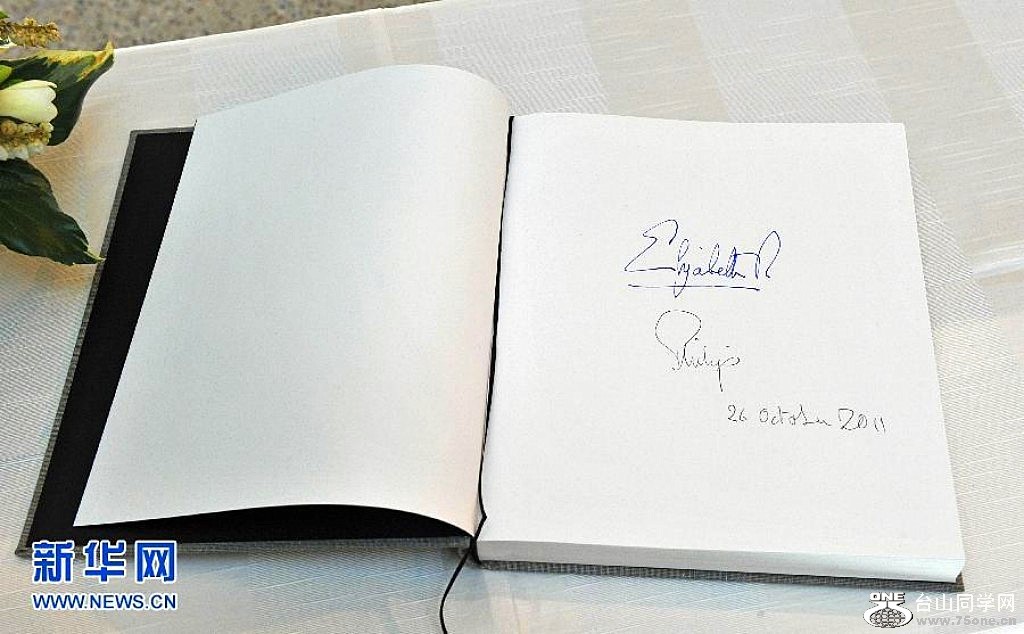 Elizabeth R
Philip
26 October 2011
新华网
WWW.NEWS.CN
ONE
台山同学网
www.75one.cn